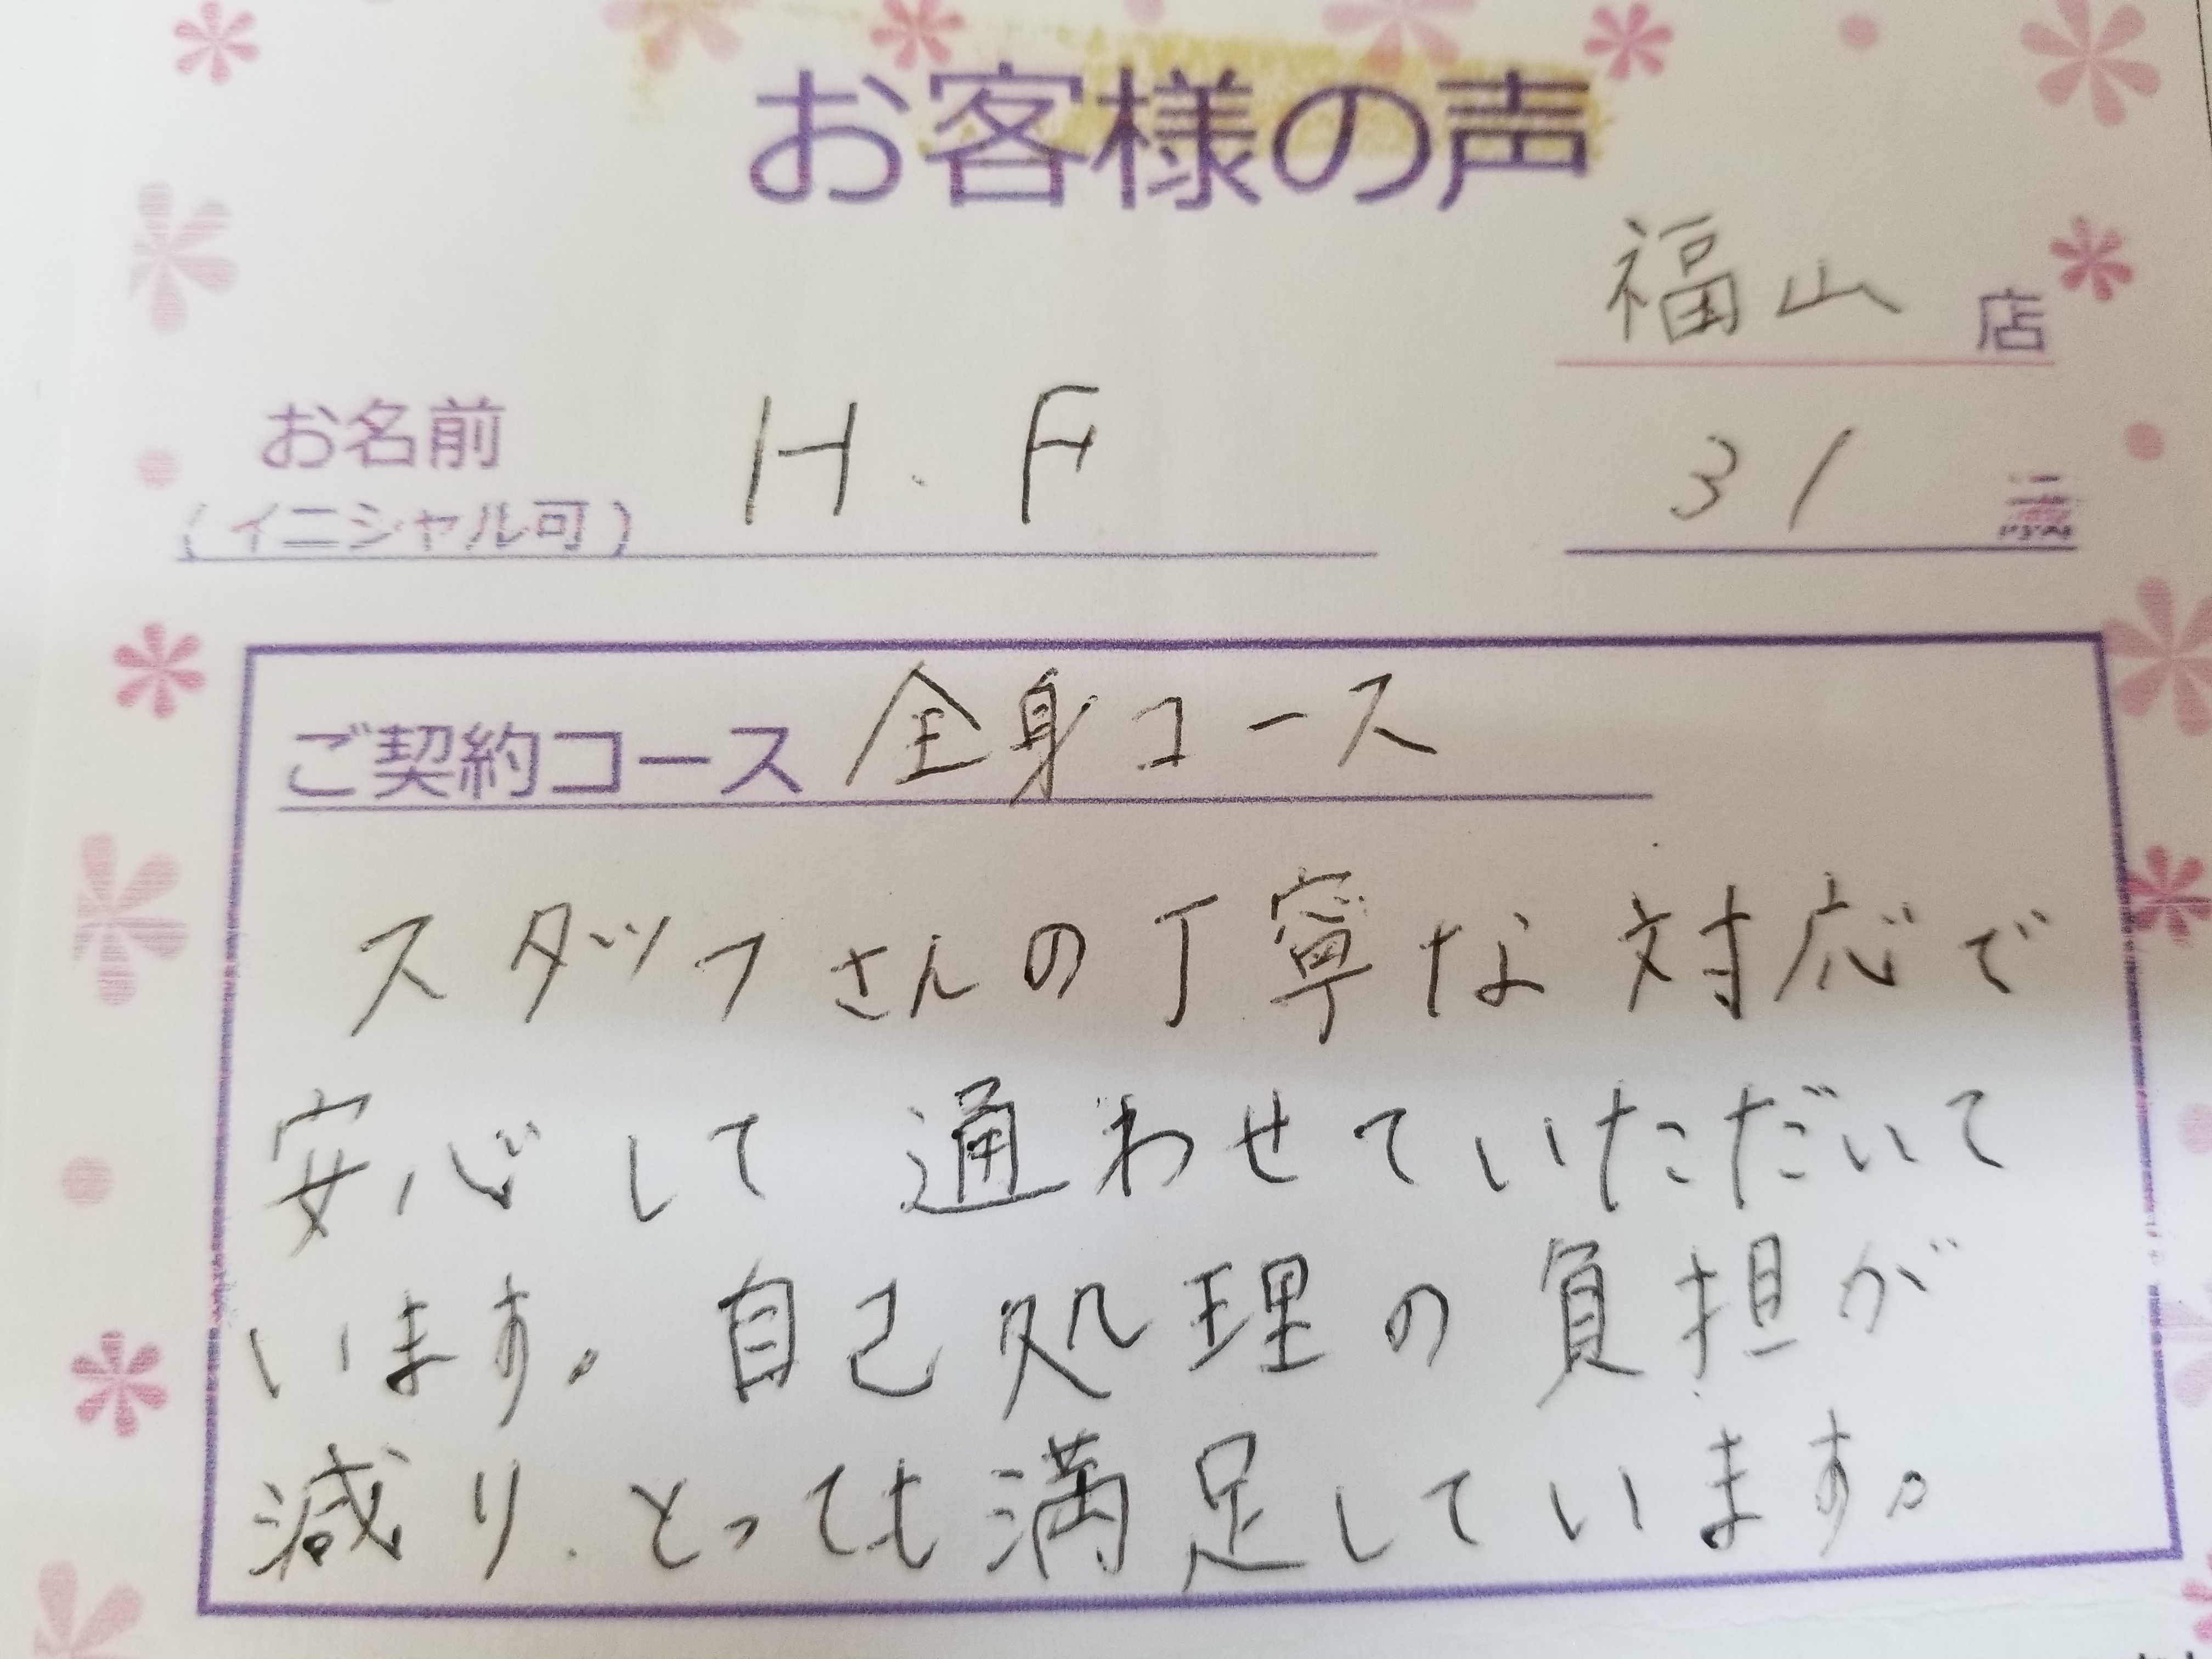 お客様の声
福山 店
お名前 H.F
(イニシャル可)
31
ご契約コース 全身コース
スタッフさんの丁寧な対応で
安心して通わせていただいて
います。自己処理の負担が
減り、とっても満足しています。